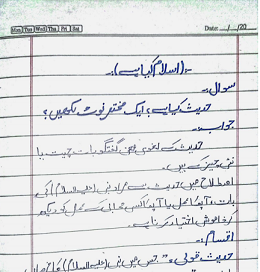 Mon Tue Wed Thu Fri Sat
Date: __/__/20
(اسلام کیا ہے)
سوال:
حدیث کیا ہے؟ ایک مختصر نوٹ لکھیں؟
جواب:
حدیث کے لغوی معنی گفتگو، بات چیت یا
نئی چیز کے ہیں۔
اصطلاح میں حدیث سے مراد نبی (علیہ السلام) کی
بات،
خاموشی اختیار کرنا ہے۔
اقسام:
حدیث قولی: جس میں نبی (علیہ السلام) کا